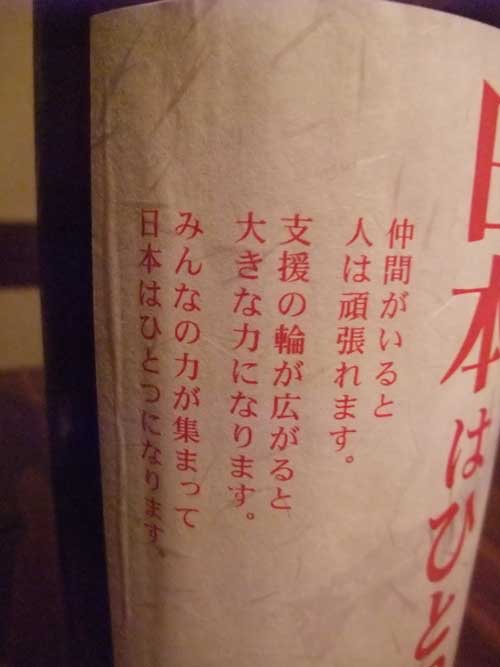 日本はひと
仲間がいると
人は頑張れます。
支援の輪が広がると
大きな力になります。
みんなの力が集まって
日本はひとつになります。